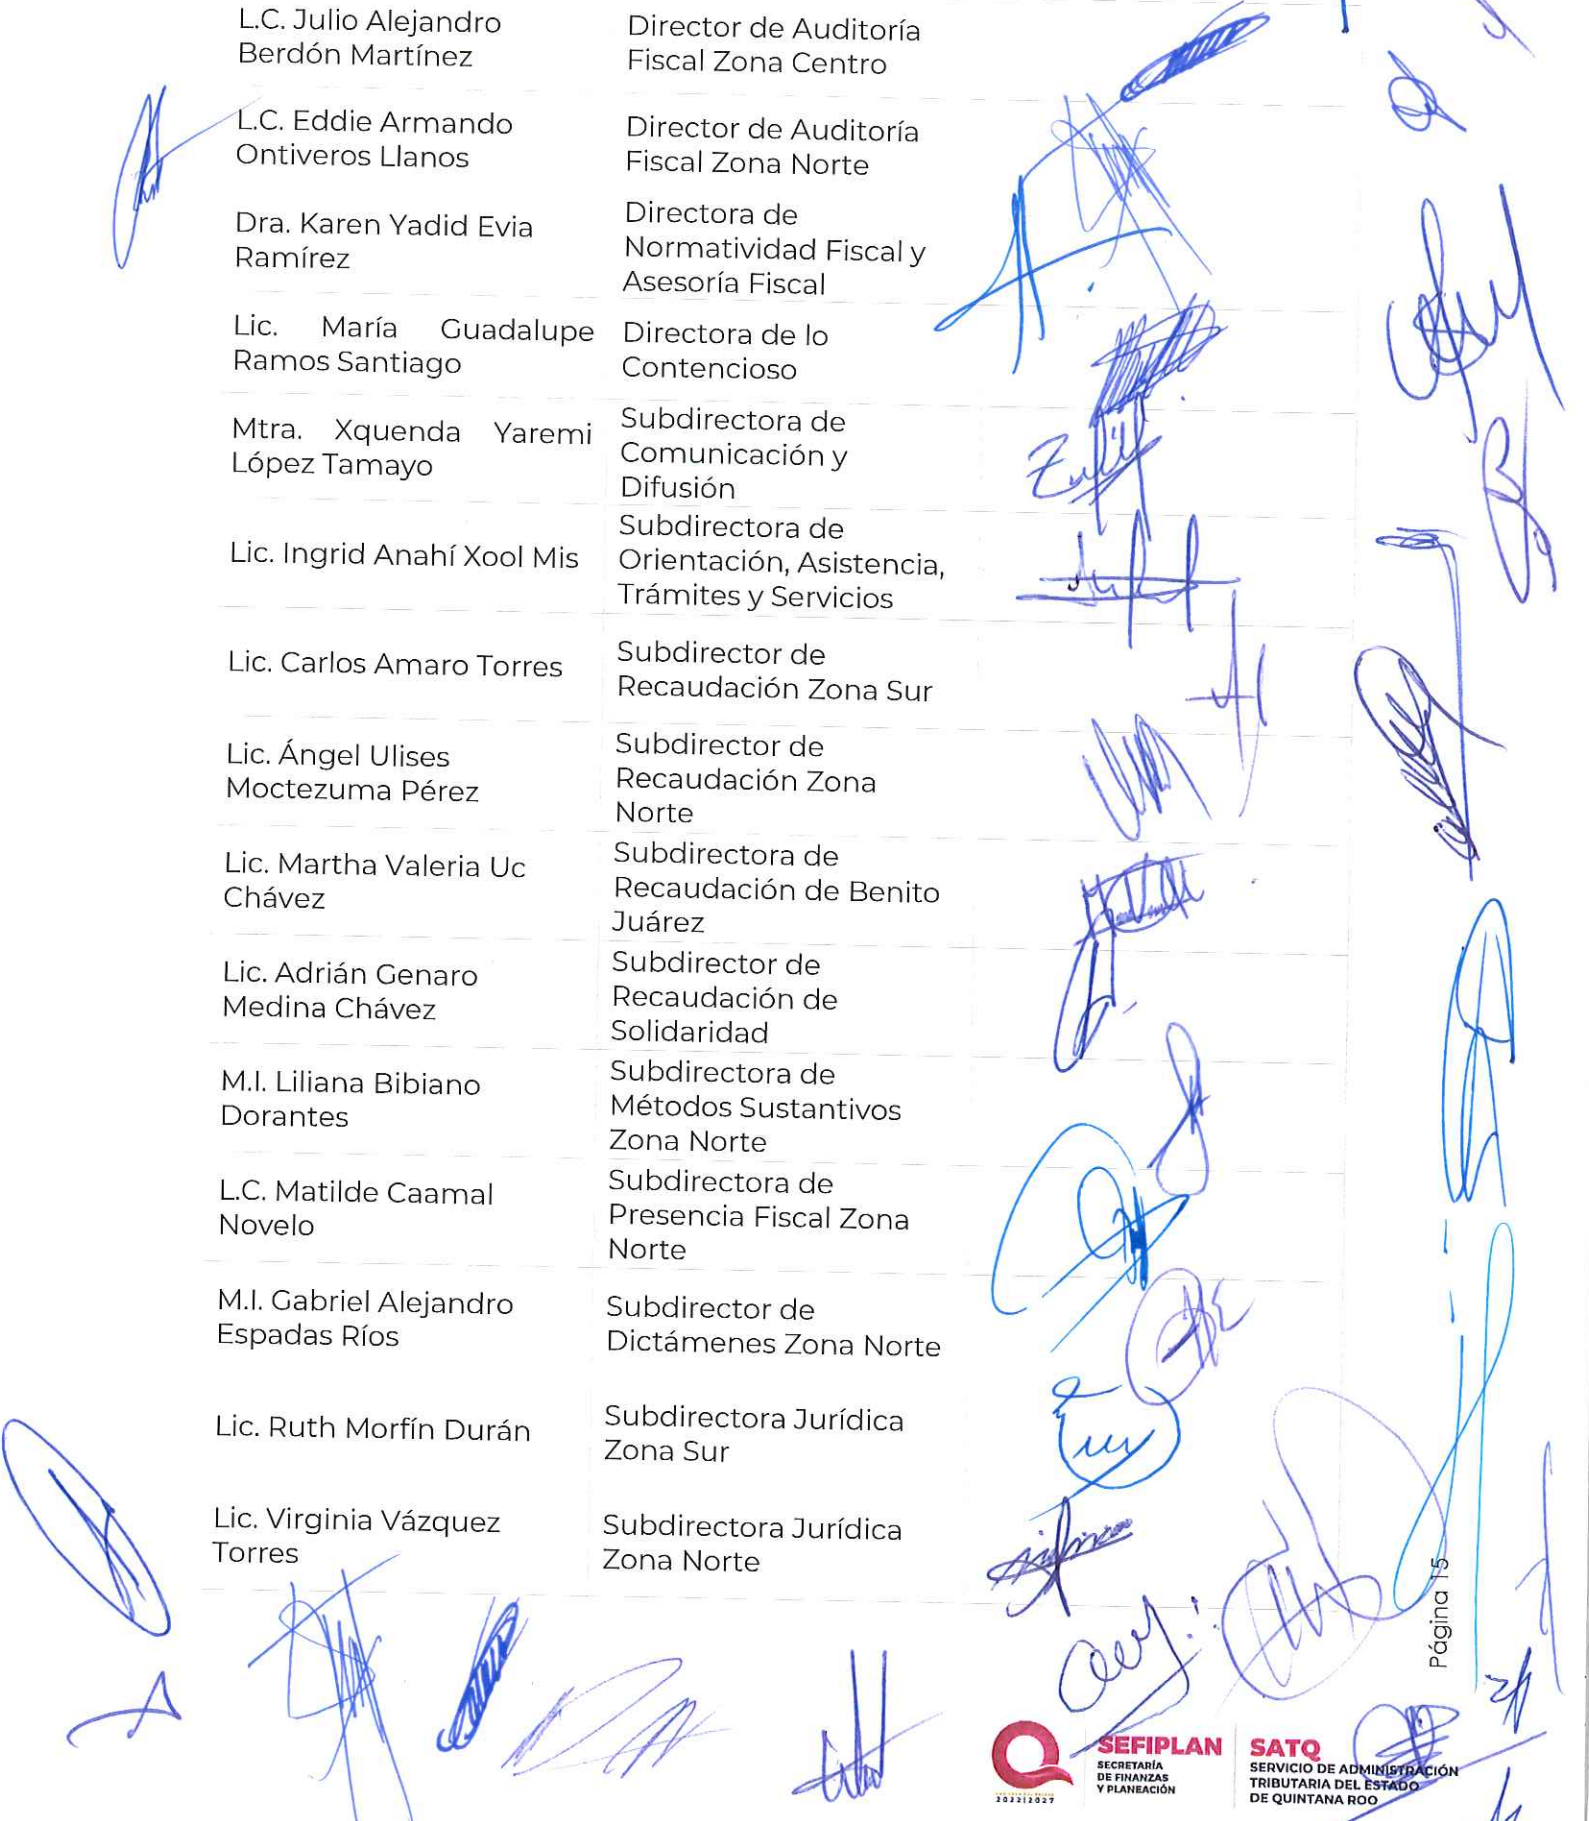 L.C. Julio Alejandro
Berdón Martínez
Director de Auditoría
Fiscal Zona Centro
L.C. Eddie Armando
Ontiveros Llanos
Director de Auditoría
Fiscal Zona Norte
Dra. Karen Yadid Evia
Ramírez
Directora de
Normatividad Fiscal y
Asesoría Fiscal
Lic. María Guadalupe
Ramos Santiago
Directora de lo
Contencioso
Mtra. Xquenda Yaremi
López Tamayo
Subdirectora de
Comunicación y
Difusión
Lic. Ingrid Anahí Xool Mis
Subdirectora de
Orientación, Asistencia,
Trámites y Servicios
Lic. Carlos Amaro Torres
Subdirector de
Recaudación Zona Sur
Lic. Ángel Ulises
Moctezuma Pérez
Subdirector de
Recaudación Zona
Norte
Lic. Martha Valeria Uc
Chávez
Subdirectora de
Recaudación de Benito
Juárez
Lic. Adrián Genaro
Medina Chávez
Subdirector de
Recaudación de
Solidaridad
M.I. Liliana Bibiano
Dorantes
Subdirectora de
Métodos Sustantivos
Zona Norte
L.C. Matilde Caamal
Novelo
Subdirectora de
Presencia Fiscal Zona
Norte
M.I. Gabriel Alejandro
Espadas Ríos
Subdirector de
Dictámenes Zona Norte
Lic. Ruth Morfín Durán
Subdirectora Jurídica
Zona Sur
Lic. Virginia Vázquez
Torres
Subdirectora Jurídica
Zona Norte
Página 15
2022|2027
SEFIPLAN
SECRETARÍA
DE FINANZAS
Y PLANEACIÓN
SATQ
SERVICIO DE ADMINISTRACIÓN
TRIBUTARIA DEL ESTADO
DE QUINTANA ROO